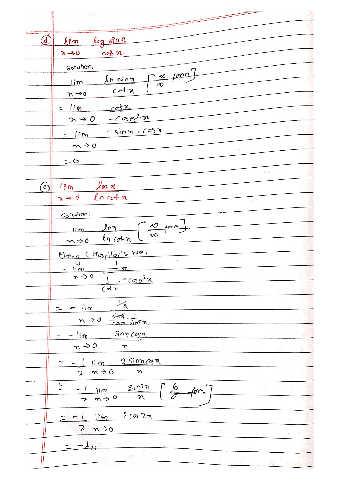 (d) lim x→0 log sin x / cot x
Solution
lim x→0 ln sin x / cot x [∞/∞ form]
= lim x→0 cot x / -cosec²x
= lim x→0 - sin x . cos x
= 0
(e) lim x→0 ln x / ln cot x
Solution
lim x→0 ln x / ln cot x [∞/∞ form]
L Hospital's
= lim x→0 1/x / 1/cot x . -cosec²x
= - lim x→0
= - lim x→0 sin x cos x / x
= - 1/2 lim x→0 2 sin x cos x / x
= - 1/2 lim x→0 sin 2x / x [0/0 form]
= - 1/2 lim x→0 2 cos 2x
= -1